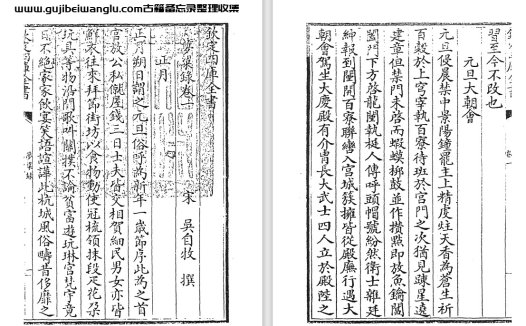 www.gujibeiwanglu.com古籍备忘录整理收集
欽定四庫全書
夢粱錄卷一
宋 吳自牧 撰
正月
正月朔日謂之元旦俗呼為新年一歲節序此為之首
官放公私僦屋錢三日士夫皆交相賀細民男女亦皆
鮮衣往來拜節街坊以食物動使冠梳領抹段疋花朶
玩具等物沿門歌叫關撲不論貧富遊玩琳宮梵宇竟
日不絕家家飲宴笑語喧譁此杭城風俗疇昔侈靡之
習至今不改也
元旦大朝會
元旦侵晨禁中景陽鐘罷主上精虔炷天香為蒼生祈
百穀於上穹宰執百寮待班於宮門之次猶見疎星遶
建章但禁門未啓而蝦蟆梆鼓並作攢點即放魚鑰闔
門下方啓龍闉執梃人傳呼頭帽號紛然衛士雜廷
紳報到百寮聯鑣入宮城簇擁皆從殿廡行遇大
朝會駕坐大慶殿有介冑長大武士四人立於殿陛之